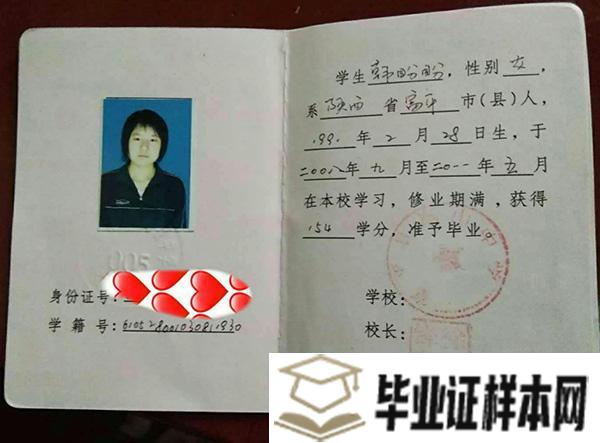 身份证号:
学 籍 号: 610528001030811930
学生 韩盼盼 , 性别 女 ,
系 陕西 省 富平 市(县)人,
199 年 2 月 28 日生, 于
年 九 月至 二〇一一 年 五 月
在本校学习, 修业期满, 获得
154 学分, 准予毕业。
学校:
校长:
毕业证样本网